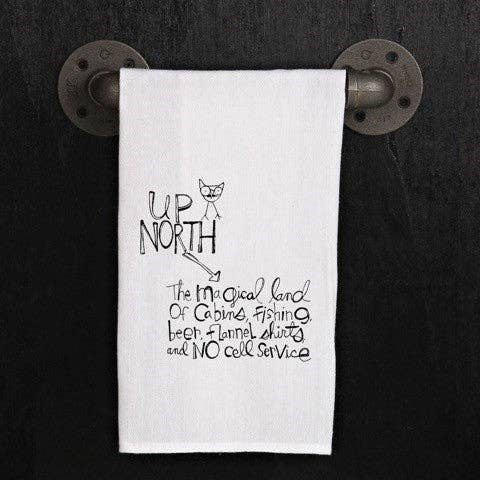 UP
NORTH
The magical land
Of Cabins, Fishing,
beer, flannel shirts,
and NO cell service